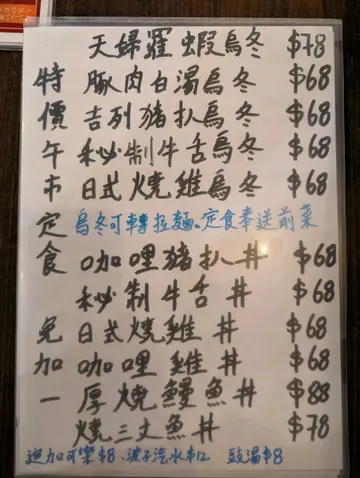 天婦羅蝦烏冬 $78
豚肉白湯烏冬 $68
吉列豬扒烏冬 $68
秘制牛舌烏冬 $68
日式燒雞烏冬 $68
烏冬可轉拉麵、定食奉送前菜
咖哩豬扒丼 $68
秘制牛舌丼 $68
日式燒雞丼 $68
咖哩雞丼 $68
厚燒鰻魚丼 $88
燒三文魚丼 $78
特價午市定食免加一
追加可樂$8、波子汽水$12 豉湯$8